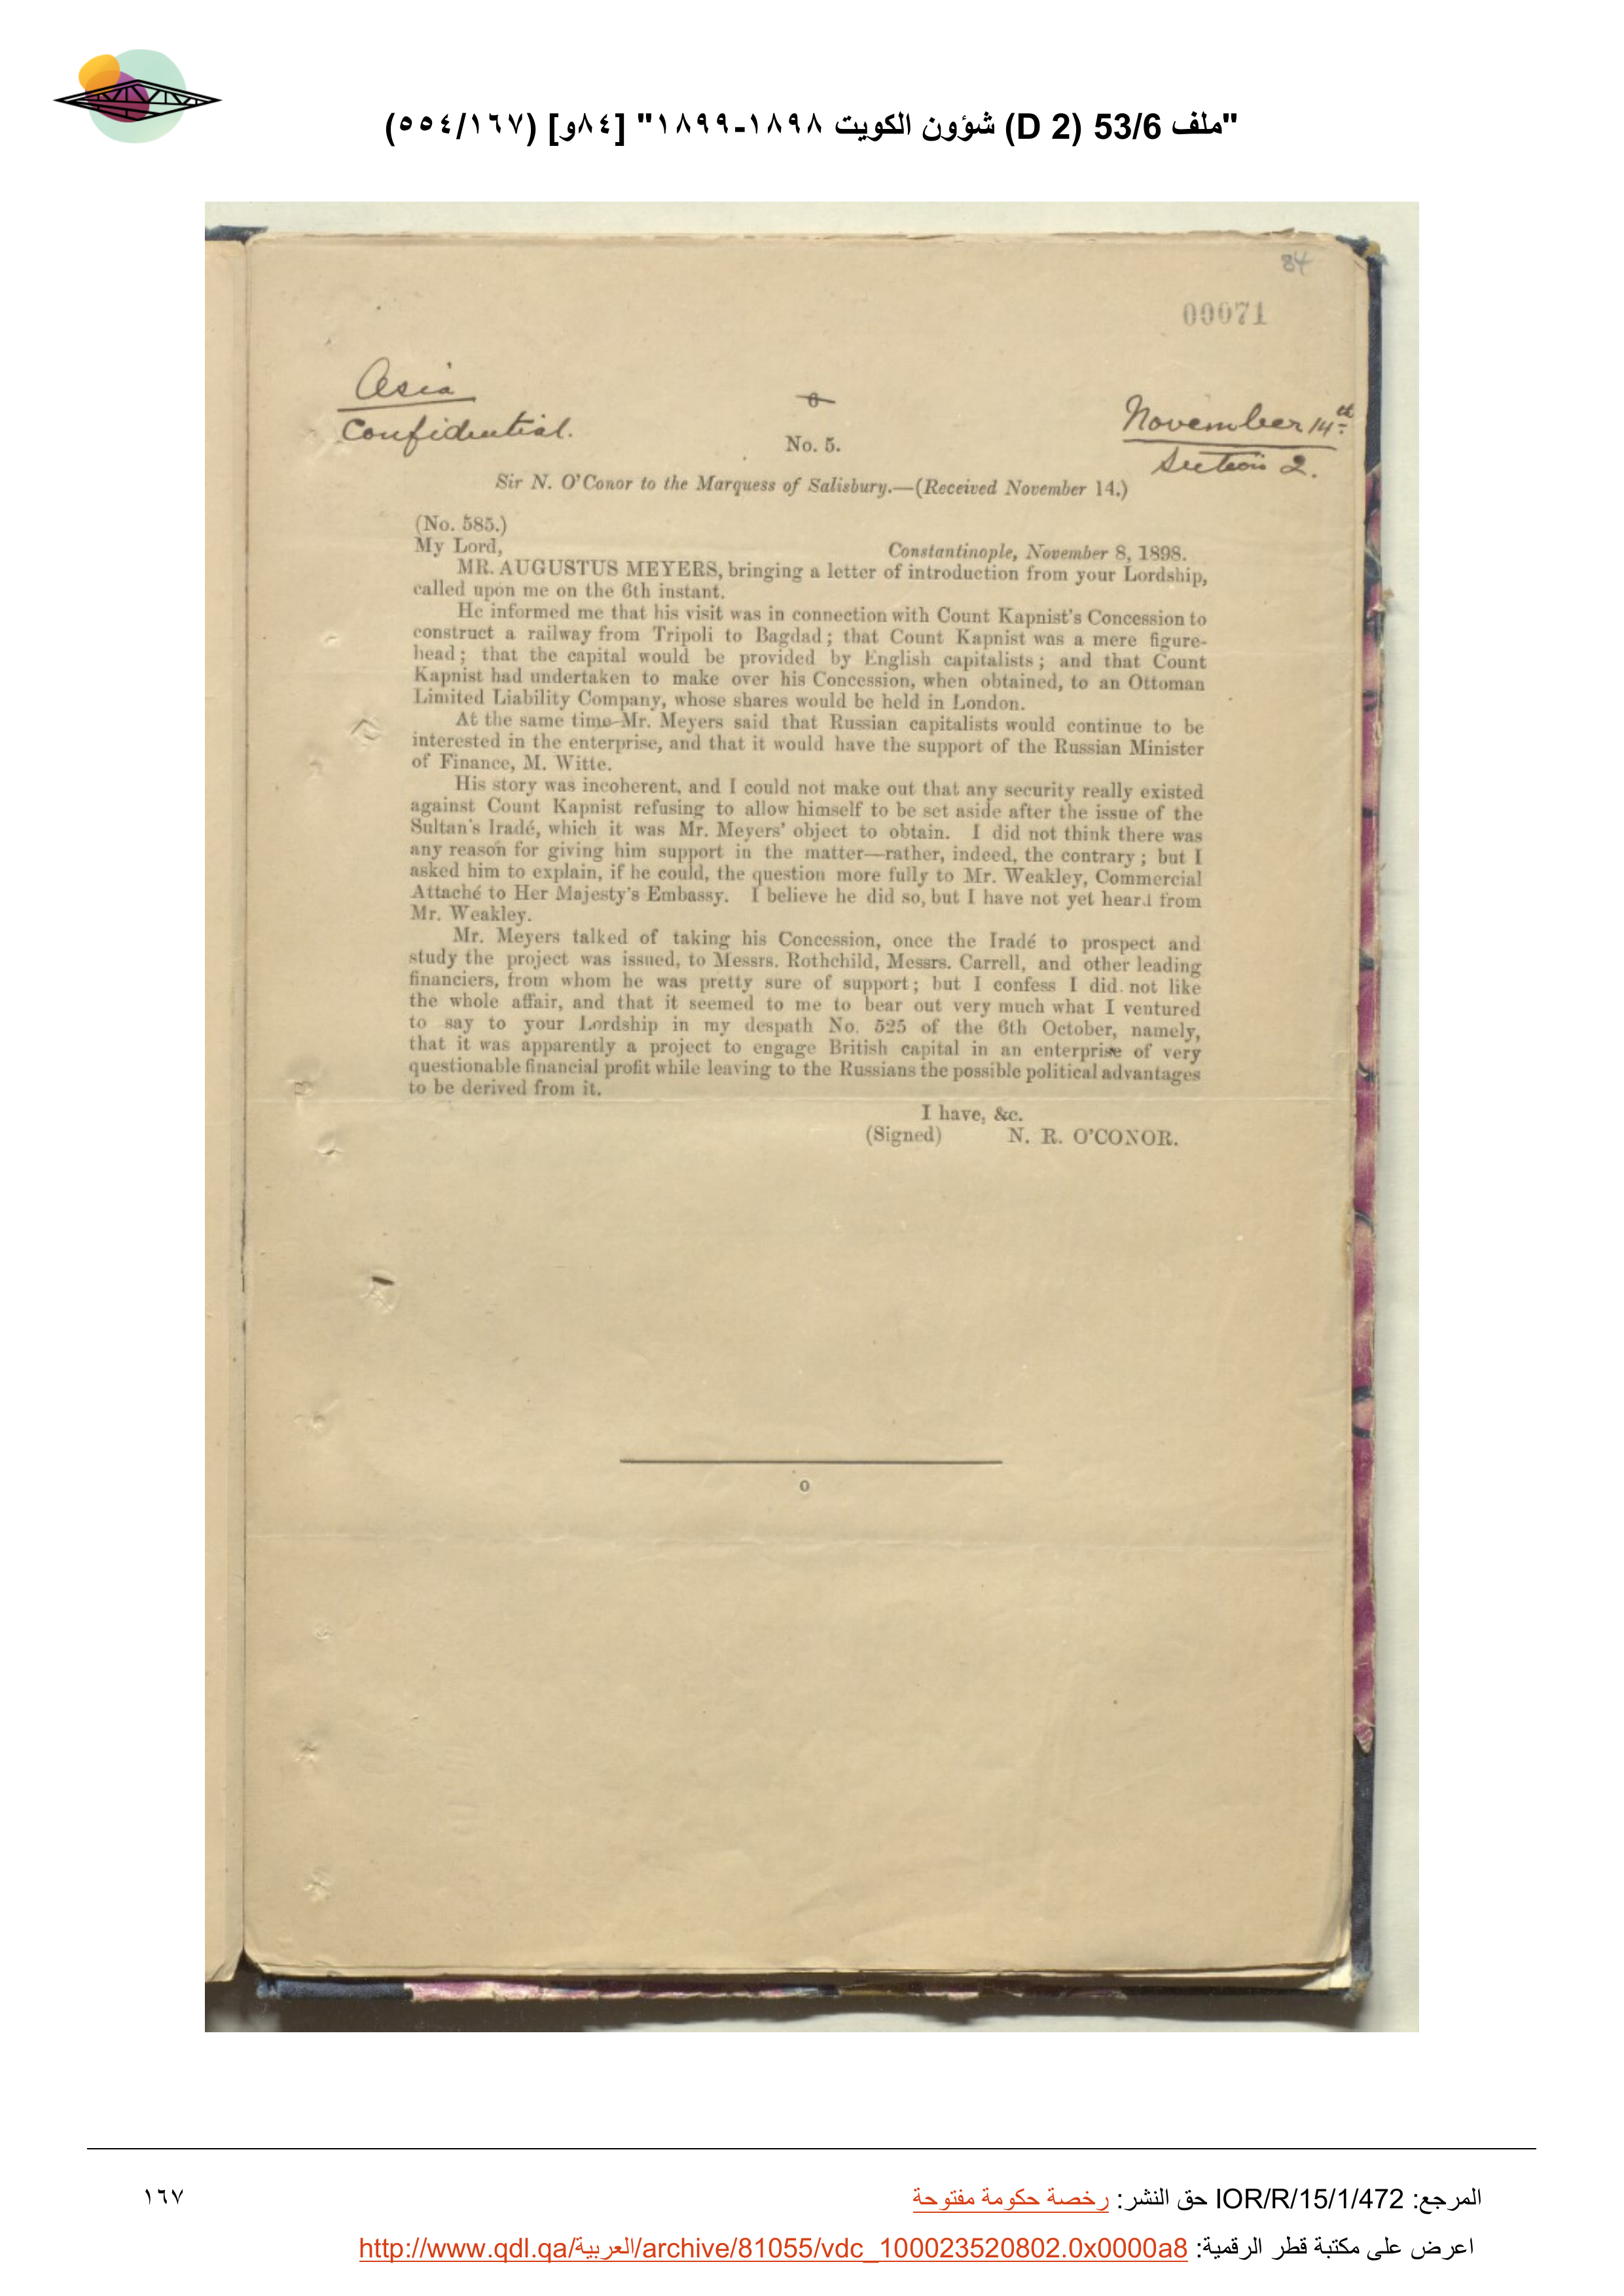 "ملف 53/6 (D 2) شؤون الكويت ١٨٩٨-١٨٩٩" [٨٤و] (٥٥٤/١٦٧)
84
00071
Asia
Confidential.
6
No. 5.
November 14th
Section 2.
Sir N. O'Conor to the Marquess of Salisbury.—(Received November 14.)
(No. 585.)
My Lord,
Constantinople, November 8, 1898.
MR. AUGUSTUS MEYERS, bringing a letter of introduction from your Lordship,
called upon me on the 6th instant.
He informed me that his visit was in connection with Count Kapnist's Concession to
construct a railway from Tripoli to Bagdad; that Count Kapnist was a mere figure-
head; that the capital would be provided by English capitalists; and that Count
Kapnist had undertaken to make over his Concession, when obtained, to an Ottoman
Limited Liability Company, whose shares would be held in London.
At the same time Mr. Meyers said that Russian capitalists would continue to be
interested in the enterprise, and that it would have the support of the Russian Minister
of Finance, M. Witte.
His story was incoherent, and I could not make out that any security really existed
against Count Kapnist refusing to allow himself to be set aside after the issue of the
Sultan's Iradé, which it was Mr. Meyers' object to obtain. I did not think there was
any reason for giving him support in the matter—rather, indeed, the contrary; but I
asked him to explain, if he could, the question more fully to Mr. Weakley, Commercial
Attaché to Her Majesty's Embassy. I believe he did so, but I have not yet heard from
Mr. Weakley.
Mr. Meyers talked of taking his Concession, once the Iradé to prospect and
study the project was issued, to Messrs. Rothchild, Messrs. Carrell, and other leading
financiers, from whom he was pretty sure of support; but I confess I did not like
the whole affair, and that it seemed to me to bear out very much what I ventured
to say to your Lordship in my despath No. 525 of the 6th October, namely,
that it was apparently a project to engage British capital in an enterprise of very
questionable financial profit while leaving to the Russians the possible political advantages
to be derived from it.
I have, &c.
(Signed) N. R. O'CONOR.
o
المرجع: IOR/R/15/1/472 حق النشر: رخصة حكومة مفتوحة
١٦٧
اعرض على مكتبة قطر الرقمية: http://www.qdl.qa/العربية/archive/81055/vdc_100023520802.0x0000a8